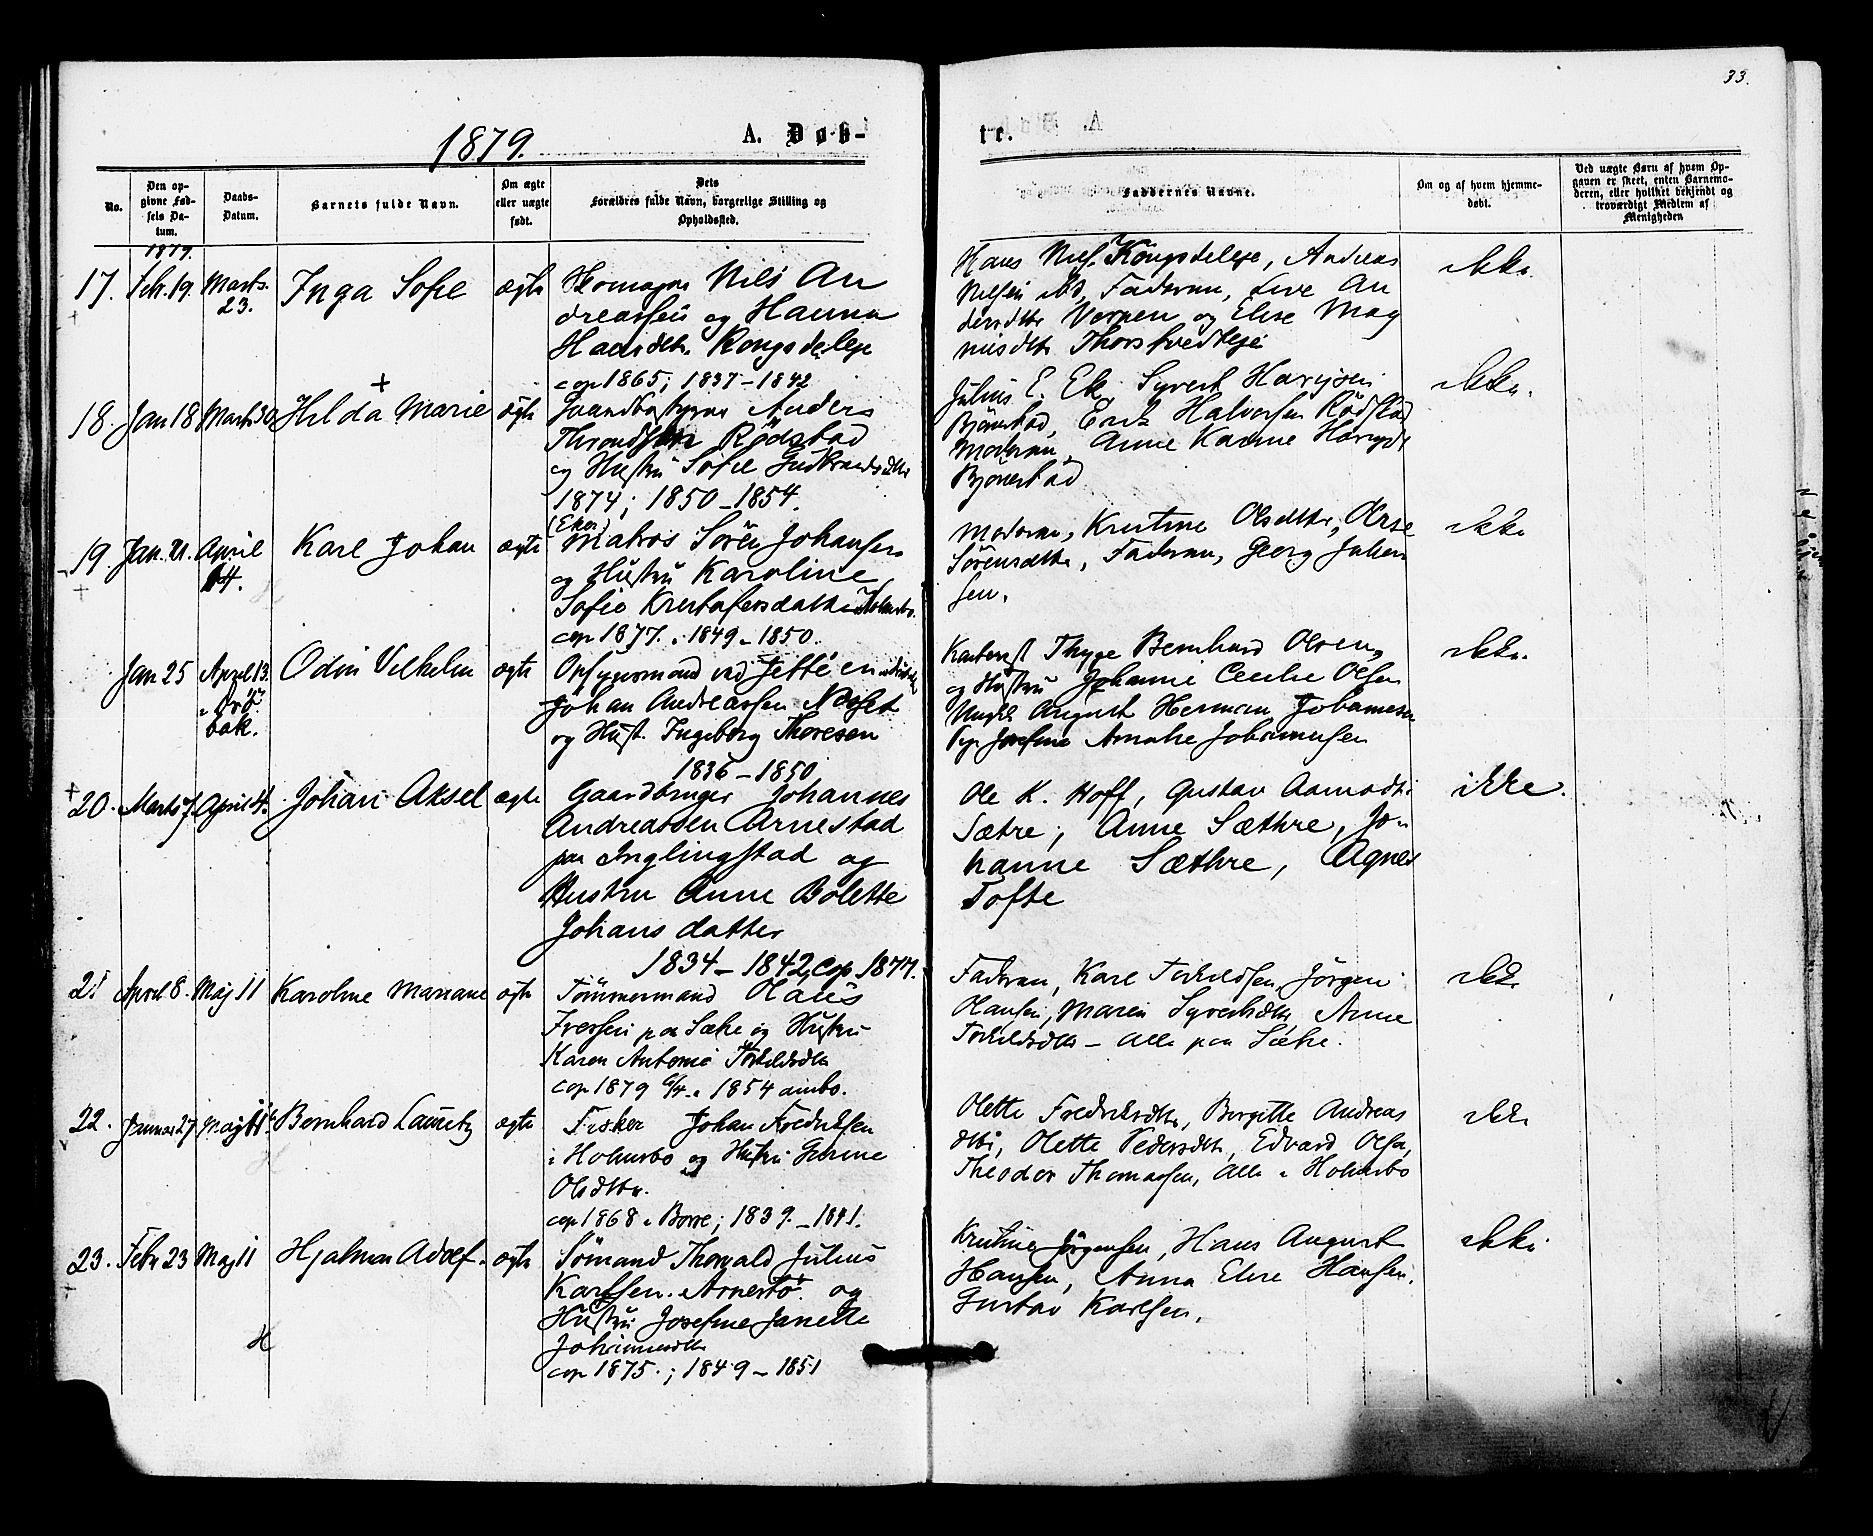 33.
1879.
A. Døb-
te.
No.
Den op-
givne Fød-
sels Da-
tum.
Daabs-
Datum.
Barnets fulde Navn.
Om ægte
eller uægte
født.
Dets
Forældres fulde Navn, borgerlige Stilling og
Opholdssted.
Faddernes Navne.
Om og af hvem hjemme-
døbt.
Ved uægte Børn af hvem Op-
gaven er skeet, enten Barnemo-
deren, eller hvilket bekjendt og
troværdigt Medlem af
Menigheden
1879.
17. Febr. 19. Marts
23.
Inga Sofie
ægte
Nils An
dreassen og Hanna
Hansdtr. Kongsdeleje
cop 1865; 1837-1842
Hans Niels. Kongsdeleje, Andreas
Nilsen ibd, Faderen, Live An
dersdtr Verpen og Else Mag
nusdtr Thorstvedteje
ikke.
18. Jan 18 Marts 30
Hilda Marie
ægte
Gaardbestyrer Anders
Throndsen Rødstad
og Hustru Sofie Gudbrandsdtr
1874; 1850-1854.
Julius E. Ek, Syvert
Bjørnstad, Erik Halvorsen Rødstad
Moderen, Anne Karine
Bjørnstad
ikke.
19. Jan. 21. April
14.
Karl Johan
ægte
Matros Sören Johansen
og Hustru Karoline
Sofie Kristofersdatter Holmsbo.
cop 1877. 1849-1850.
Moderen, Kristine Olsdtr,
Sörensdtr, Faderen, Georg Johan
sen.
ikke
Jan 25 April 13.
i Drö
bak.
Odin Vilhelm
ægte
Opsynsmand ved
Johan Andreassen
og Hust. Ingeborg Thoresen
1836-1850
Thyge Bernhard Olsen
og Hustru Johanne Cecilie Olsen
Ungkl August Herman Johannesen
Pige Josefine Amalie Johannesen
ikke.
20. Marts 7. April 14.
Johan Aksel
ægte
Gaardbruger Johannes
Andreassen Arnestad
paa Inglingstad og
Hustru Anne Bolette
Johans datter
1834-1842, Cop 1877.
Ole K. Hoff, Gustav Aamodt
Sætre, Anne Sæthre, Jo-
hanne Sæthre, Agnes
Tofte
ikke.
21 April 8. Maj 11
Karoline Mariane
ægte
Tømmermand Olaus
Iversen paa Sætre og Hustru
Karen Antonie Torkildsdtr
cop 1879 6/4. 1854 ambo.
Faderen, Karl Torkildsen, Jørgen
Hansen, Maren Syvertsdtr, Anne
Torkildsdtr - alle paa Sætre.
ikke
22. Januar 27 Maj 11
Bernhard Lauritz
ægte
Fisker Johan Fredriksen
i Holmsbo og Hustru
Olsdtr.
cop 1868 i Borre; 1839.-1841.
Olette Fredriksdtr, Birgitte Andreas
dtr, Olette Pedersdtr, Edvard Olsen,
Theodor Thomassen, alle i Holmsbo
ikke
23. Febr 23 Maj 11
Hjalmar Adolf.
ægte
Sømand Thorvald Julius
Karlsen. Arnestø og
Hustru Josefine Janette
Johannesdtr
cop 1875.; 1849-1851
Kristine Jørgensen, Hans August
Hansen, Anna Elise Hansen.
Gustav Karlsen.
ikke
H